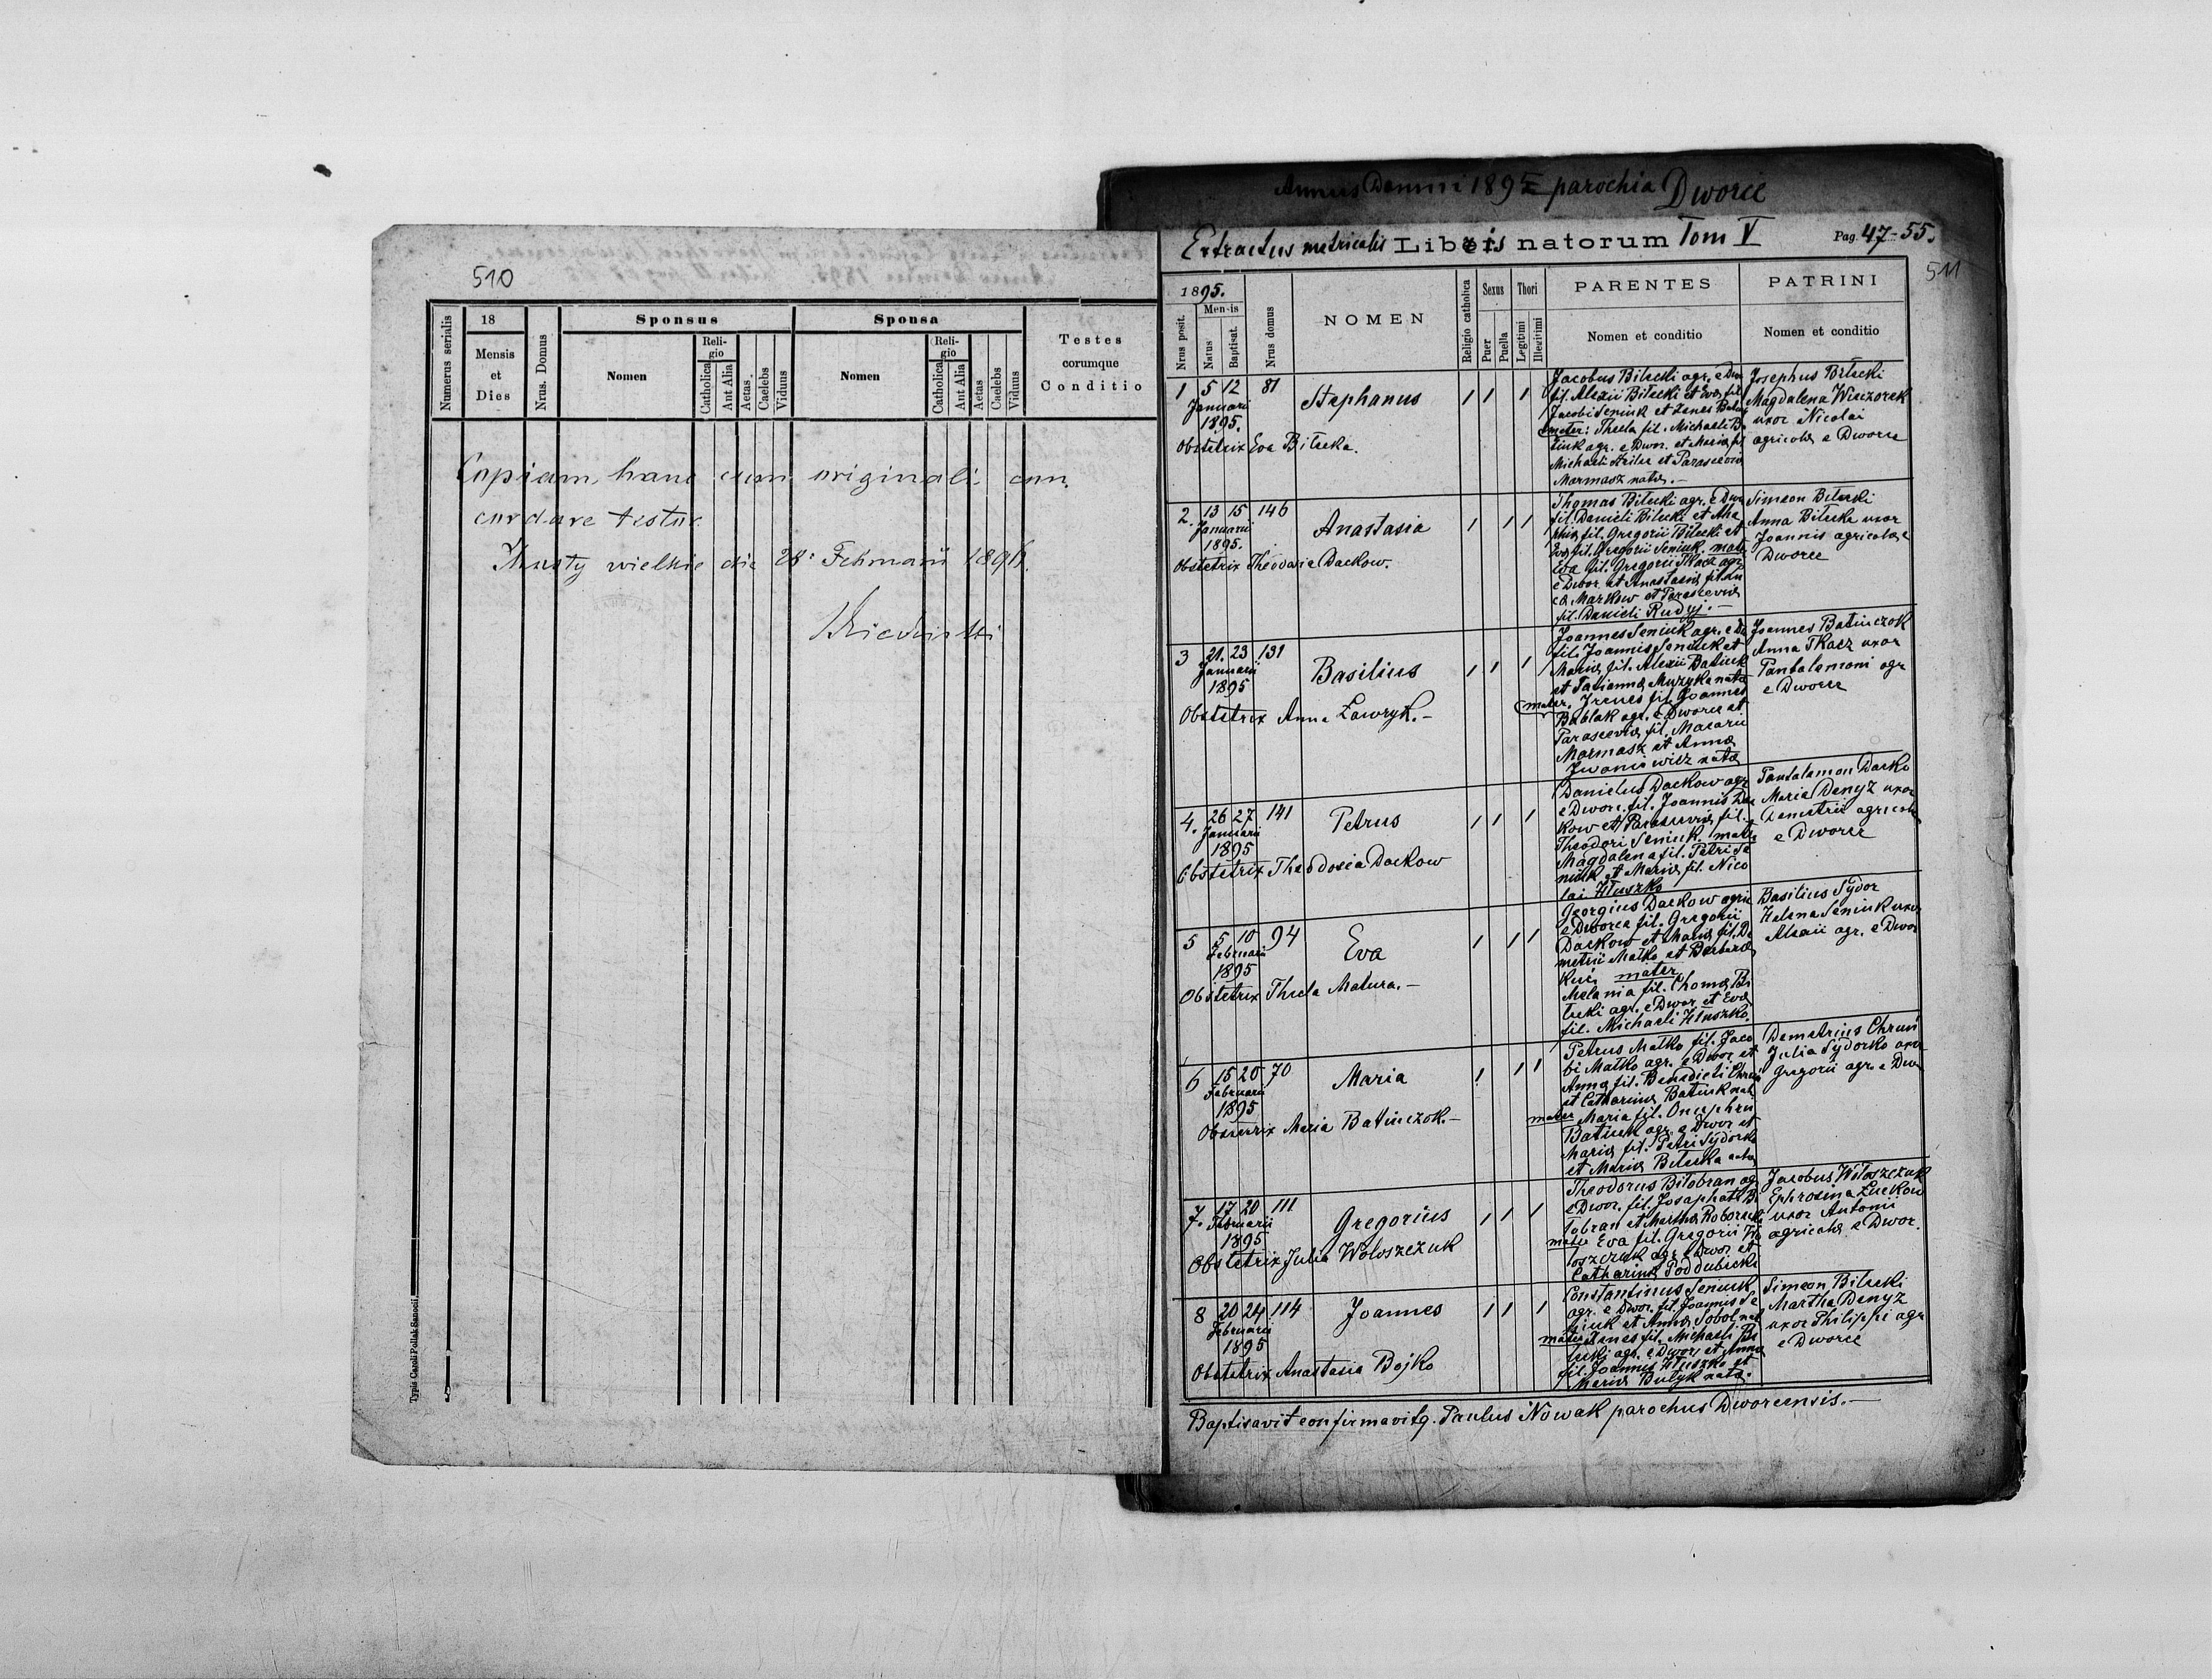 510
Numerus serialis
18
Mensis
et
Dies
Nrus. Domus
Sponsus
Nomen
Reli-
gio
Catholica
Aut Alia
Aetas
Caelebs
Viduus
Sponsa
Nomen
Reli-
gio
Catholica
Aut Alia
Aetas
Caelebs
Viduus
Testes
eorumque
Conditio
Copiam hanc cum originali con
cordare testor
wielkie die 28
Typis Caroli Pollak Sanocii.
Annus Domini 1895 parochia Dworce
Extractus metricalis Libris natorum Tom V
Pag. 47-55.
511
1895.
Nrus posit.
Mensis
Natus
Baptisat.
Nrus domus
NOMEN
Religio catholica
Sexus
Puer
Puella
Thori
Legitimi
Illegitimi
PARENTES
Nomen et conditio
PATRINI
Nomen et conditio
1 5 12 81 Stephanus 1 1 1
Januari
1895.
Obstetrix Eva Bilecka.
Jacobus Bilecki agr. e Dwo
fil. Alexii Bilecki et Eva fil
Jacobi Seniuk et
mater: Thecla fil. Michaeli
agr. e Dwor. et Maria fil
Michaeli et Parascevia
Marmasz nata.-
Josephus Bilecki
Magdalena Wieczorek
uxor Nicolai
agricola e Dworce
2. 13 15 146 Anastasia 1 1 1
Januarii
1895.
Obstetrix Theodosia Dackow.
Thomas Bilecki agr. e Dwo
fil. Danieli Bilecki et
fil. Gregorii Bilecki et
Eva fil. Gregorii Seniuk. mate
Eva fil. Gregorii Tkacz agr
e Dwor et Anastasia fil. Lu
ca Markow et Parascevia
fil. Danieli Rudyj.-
Simeon Bilecki
Anna Bilecka uxor
Joannis agricola e
Dworce
3 21. 23 131 Basilius 1 1 1
Januarii
1895
Obstetrix Anna Lawryk.-
Joannes Seniuk agr. e Dw
fil. Joannis Seniuk et
Maria fil. Alexii Batiuk
et Tatianna Muzyka nata
mater. Irenes fil. Joannes
Bablak agr. e Dworce et
Parascevia fil. Macarii
Marmasz et Anna
Iwaniowicz nata
Joannes Batiuczok
Anna Tkacz uxor
Pantalemoni agr
e Dworce
4. 26 27 141 Petrus 1 1 1
Januarii
1895
Obstetrix Theodosia Dackow
Danielus Dackow agr
e Dwor. fil. Joannis Dac
kow et Parascevia fil.
Theodori Seniuk. mate
Magdalena fil. Petri Se
niuk et Maria fil. Nico
lai Hluszko
Pantalemon Dacko
Maria Denyz uxor
Demetrii agricola
e Dworce
5 5 10 94 Eva 1 1 1
Februarii
1895
Obstetrix Thecla Matura.-
Georgius Dackow agric
e Dworce fil. Gregorii
Dackow et Maria fil. De
metrii Matko et Barbara
mater
Melania fil. Thoma Bi
lecki agr. e Dwor. et Eva
fil. Michaeli Hluszko.
Basilius Sydor
Helena Seniuk uxor
Alexii agr. e Dwor
6 15 20 70 Maria 1 1 1
Februarii
1895
Obstetrix Maria Batiuczok.-
Petrus Matko fil. Jaco
bi Matko agr. e Dwor et
Anna fil. Benedicti
et Catharina Batiuk nata
mater Maria fil. Onuphrii
Batiuk agr. e Dwor et
Maria fil. Petri Sydorko
et Maria Bilecka nata
Demetrius Chruń
Julia Sydorko uxor
Gregorii agr. e Dwo
7. 17 20 111 Gregorius 1 1 1
Februarii
1895
Obstetrix Julia Woloszczuk
Theodorus Bilobran ag
e Dwor. fil. Josaphati Bi
lobran et Martha
mater Eva fil. Gregorii Wo
loszczuk agr. e Dwor. et
Catharina Poddubicki
Jacobus Woloszczuk
Ephrosina Łuckow
uxor Antonii
agricola e Dwor.
8 20 24 114 Joannes 1 1 1
Februarii
1895
Obstetrix Anastasia Bojko
Constantinus Seniuk
agr. e Dwor. fil. Joannis Se
niuk et Anna Sobol nat
mater Irenes fil. Michaeli Bi
lecki agr. e Dwor. et Anna
fil. Joannis Hluszko et
Maria Bulyk nata.
Simeon Bilecki
Martha Denyz
uxor Philippi agr
e Dworce
Baptisavit confirmavitq. Paulus Nowak parochus Dworcensis.-